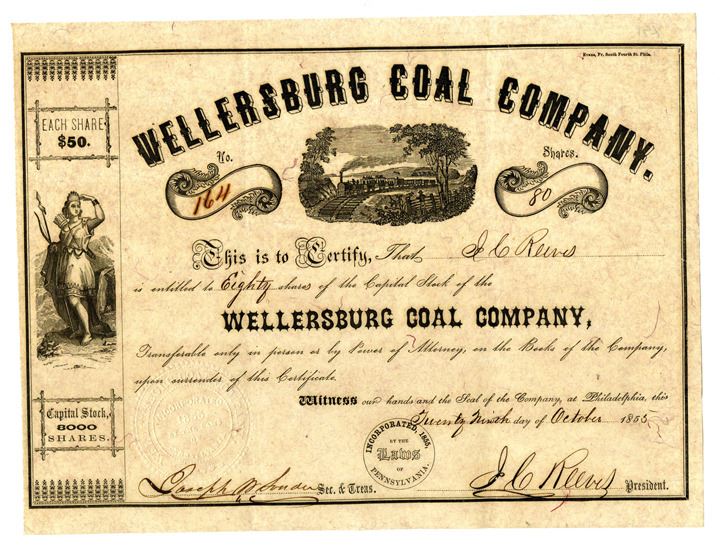 Evans, Pr. South Fourth St. Phila.
WELLERSBURG COAL COMPANY.
EACH SHARE
$50.
No.
164
Shares.
80
This is to Certify, That J C Reeves
is entitled to Eighty shares of the Capital Stock of the
WELLERSBURG COAL COMPANY,
Transferable only in person or by Power of Attorney, on the Books of the Company,
upon surrender of this Certificate.
Witness our hands and the Seal of the Company, at Philadelphia, this
Twenty Ninth day of October 1855
Capital Stock,
8000
SHARES.
INCORPORATED, 1855,
BY THE
Laws
OF
PENNSYLVANIA.
Joseph Sec. & Treas.
J C Reeves President.